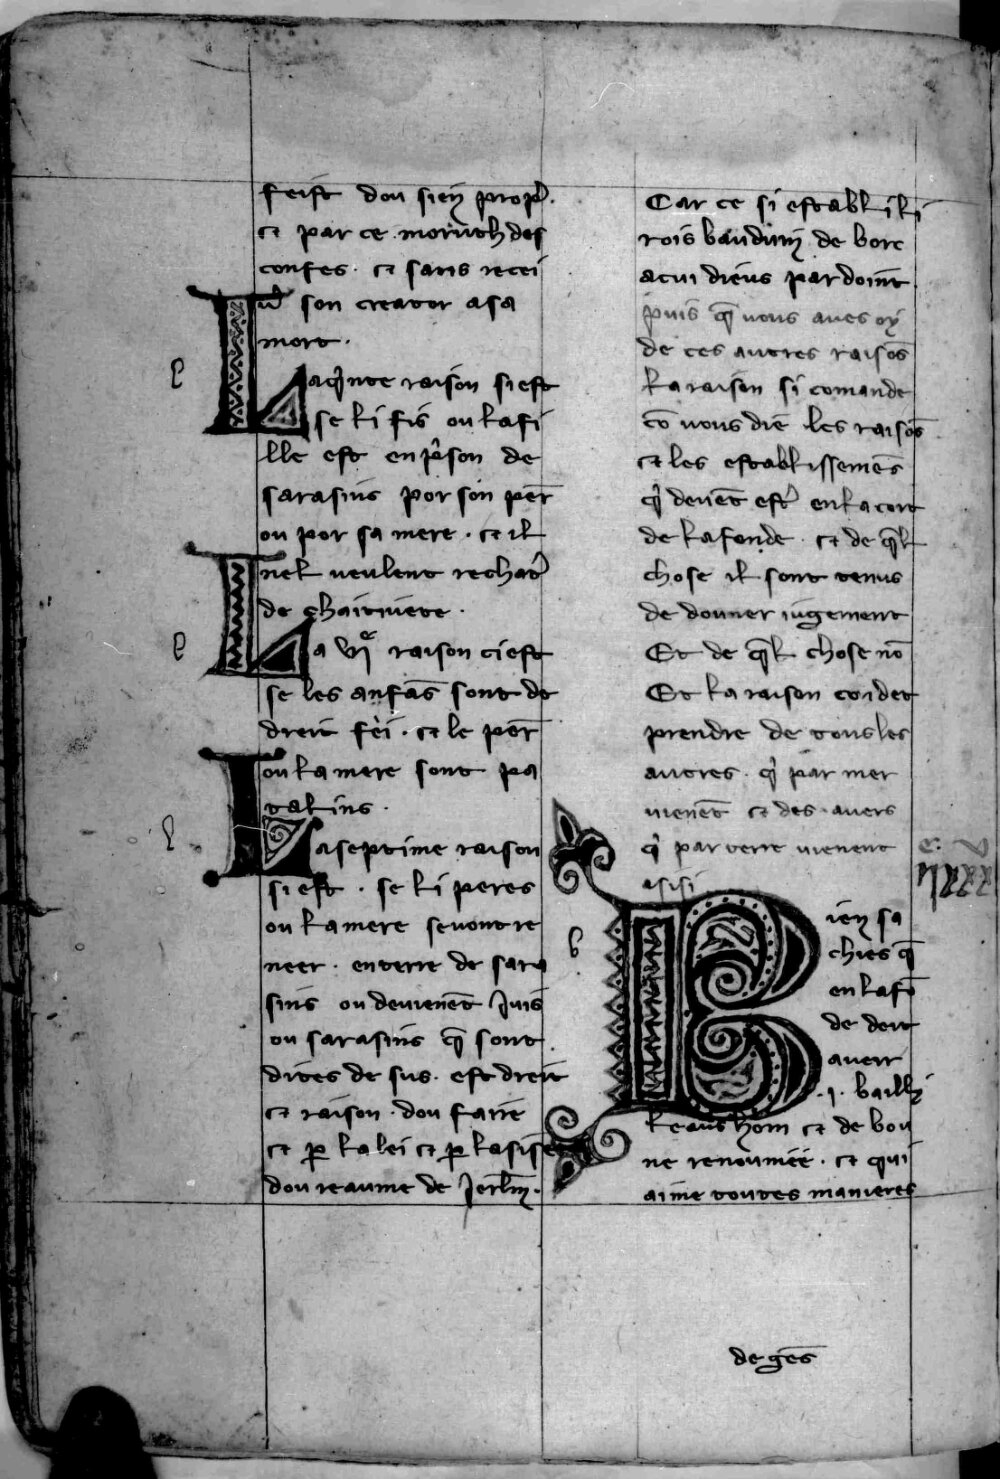 feist dou sien propr̄.
et par ce moruth des
confes. et sans recei
ur̄ son creator a sa
mort.
La qīnte raison si est
se li fis ou la fi
lle est en pr̄son de
sarasins por son per̄
ou por sa mere. et il
nel veulent rechatr̄
de chaitivete.
La vi^e raison ci est
se les anfās sont de
dreit fei. et le per̄
ou la mere sont pa
talins.
La septime raison
si est. se li peres
ou la mere se vont re
neer. en terre de sara
sins ou devienēt Juis
ou sarasins q̄ sont
dites de sus. est dreit
et raison dou faire
et ꝑ la lei et ꝑ lasise
dou reaume de Jerlm̄.
Car ce si establi li
rois bauduin de borc
a cui dieus pardoint
puis q̄ vous aves oy
de ces autres raisōs
la raison si comande
cō vous die les raisōs
et les establissemēs
qī devēt estr̄ en la cort
de la fonde. et de q̄l
chose il sont tenus
de douner iugement
Et de q̄l chose nō
Et la raison co i det
prendre de tous les
autres. qī par mer
vienēt et des avers
qī par terre vienent
asisi
Bien sa
chies q̄
en la fō
de deit
aveir
.i. bailli
leaus hom et de bou
ne renoumee. et qui
aime toutes manieres
de gēs